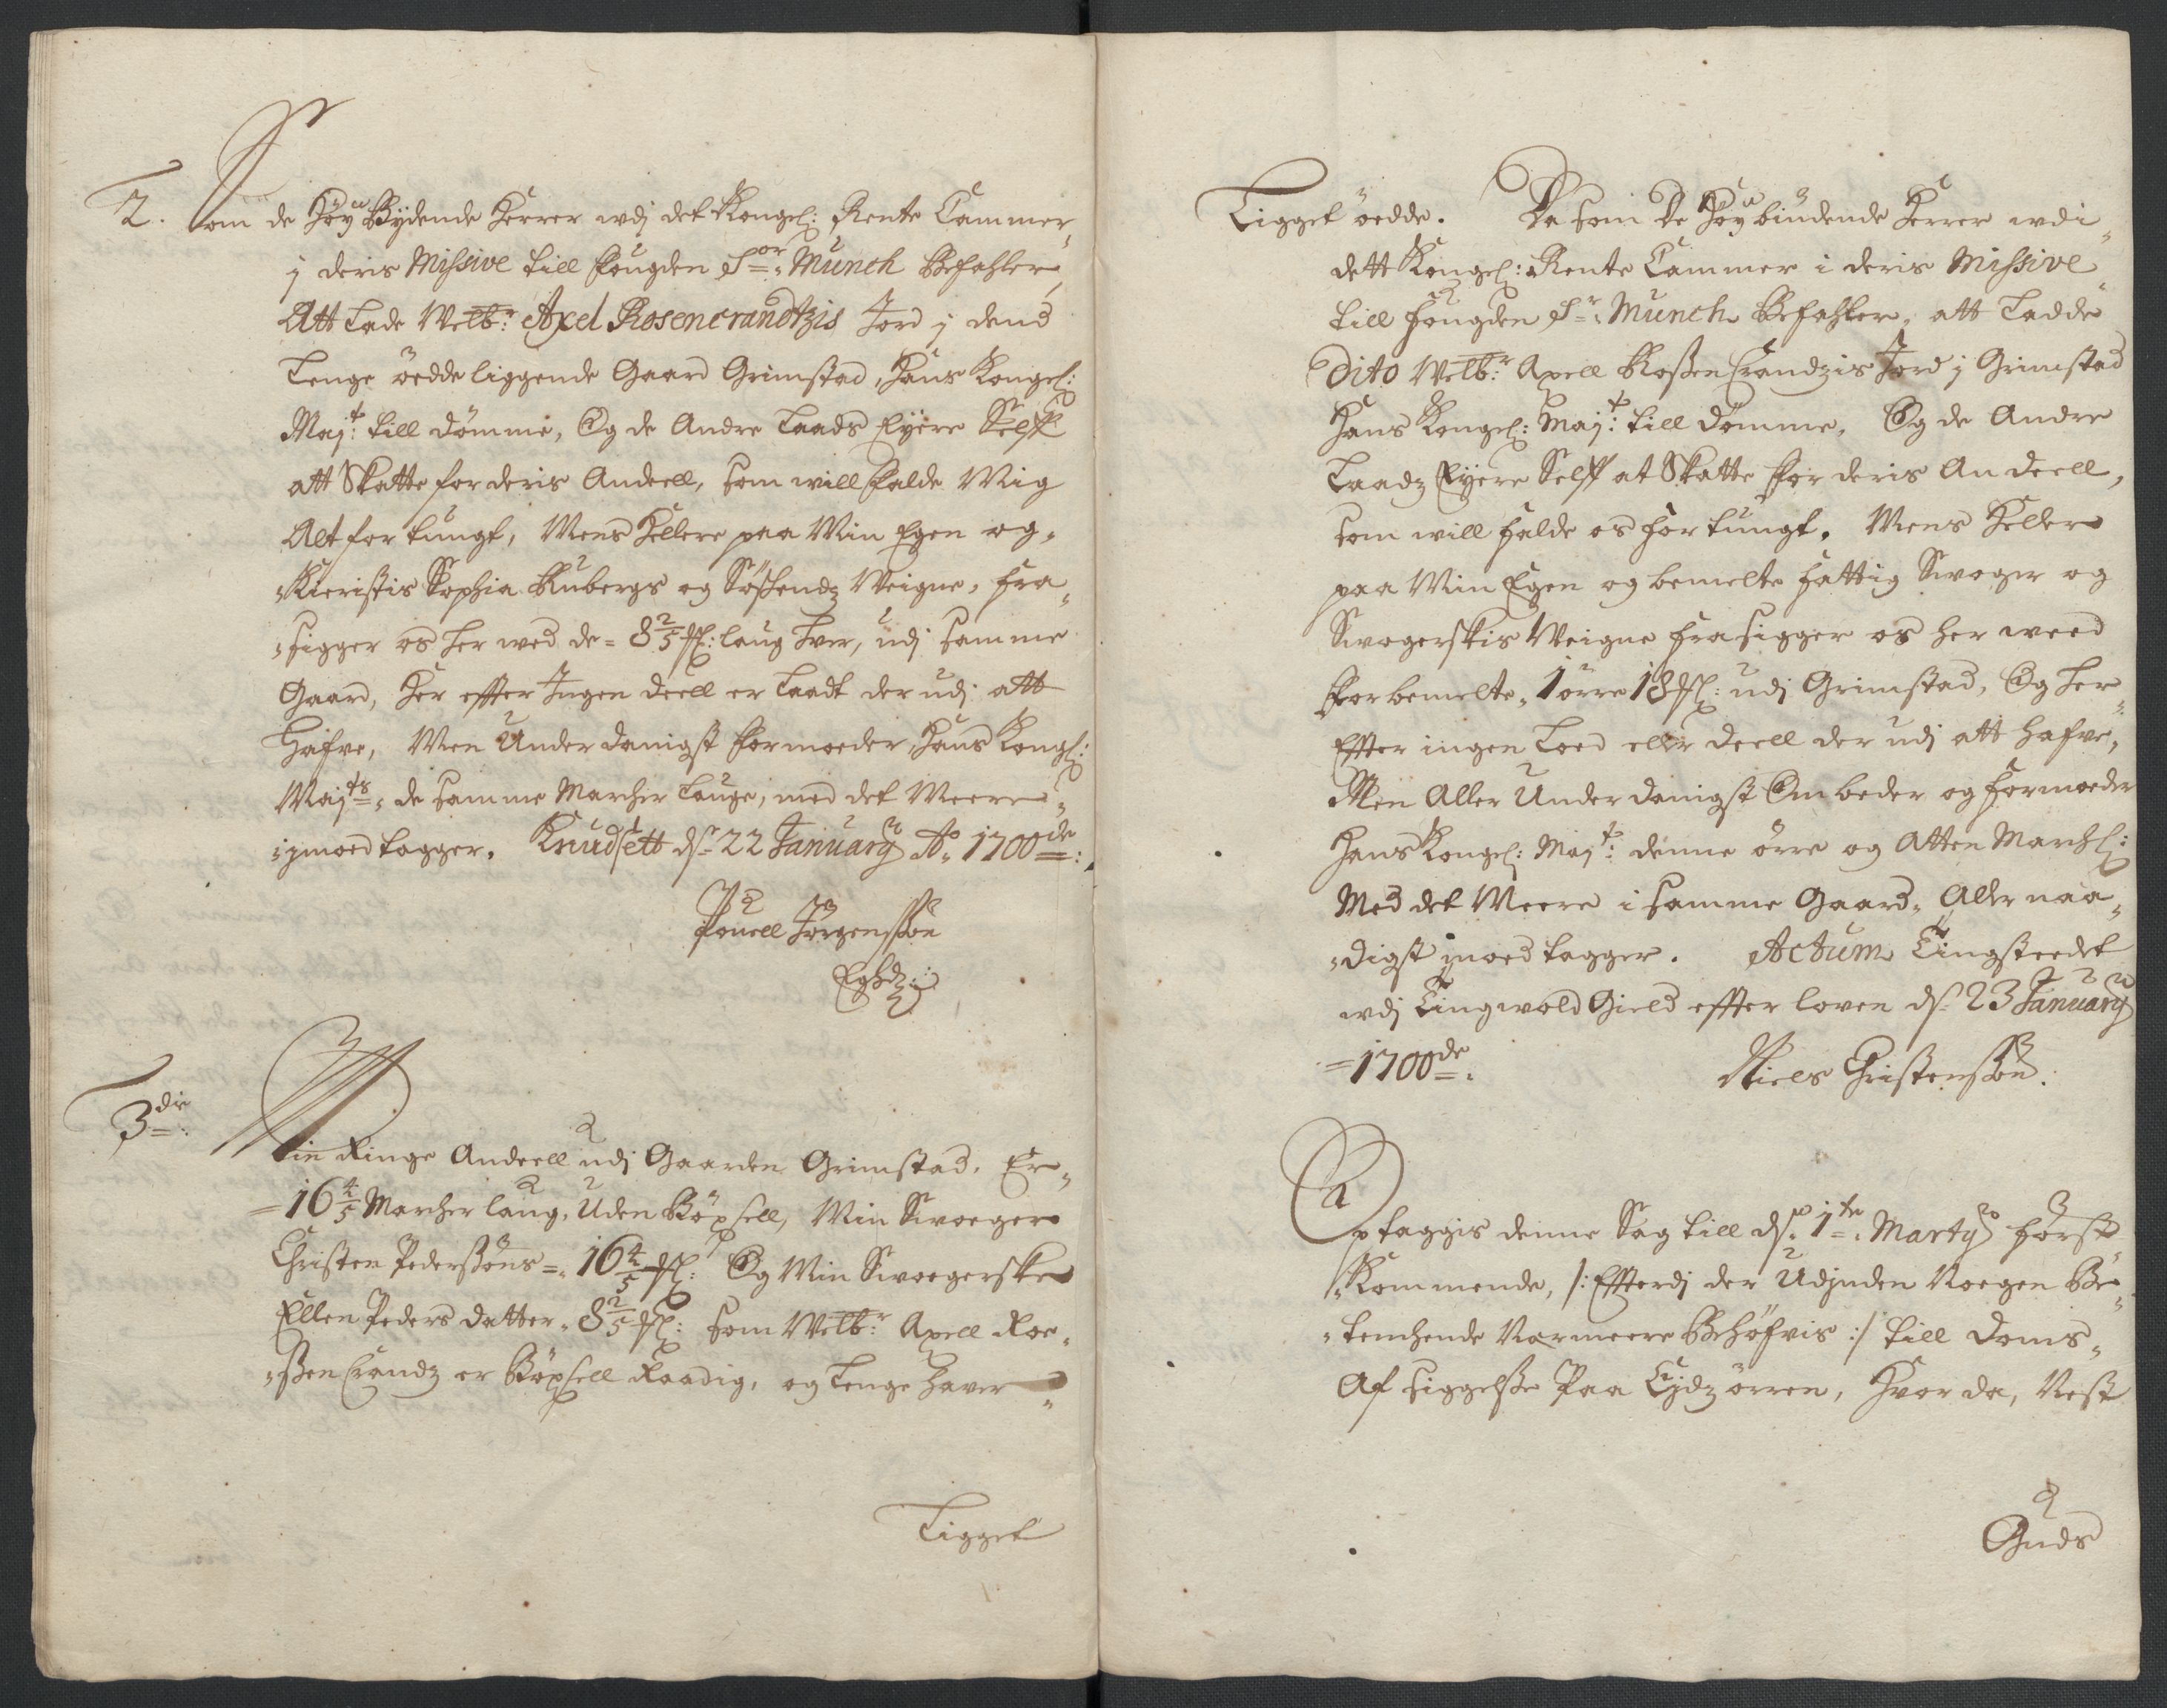 2. Som de Høy Bydende Herrer udj det Kongel: Rente Cammer,
j deris Missive till fougden Sor. Munch Befahler,
Att Lade Welb:r Axel Rosencrandtzis Jord j dend
Lenge øedde liggende Gaard Grimstad, Hans Kongel:
Maj:t till dømme, Og de Andre Laads Eyere Self
att Skatte for deris Andeell, som will falde Mig
Alt for tungt, Mens Hellere paa Min Egen og
Kieristis Sophia Rubergs og Søskends Weigne, fra,
sigger os her wed de = 8 2/5 ₰: laug hver, udj samme
Gaard, Her effter Ingen deell er Laadt der udj att
Hafve, Men Under danigst formoeder, Hans Kongl:
Maj:ts de samme Marcher Lauge, med det Meere
ijmoed tagger. Knudsett ds 22 January Ao 1700de:
Pouell Jørgenssøn
Eghd:
3die: Min Ringe Andeell udj Gaarden Grimstad. Er,
= 16 4/5 Marcher laug, Uden Bøxsell, Min Swoeger
Christen Pederssøns = 16 4/5 ₰: Og Min Swoegerske
Ellen Peders datter, 8 2/5 ₰: som Welb:r Axell Roe,
ssen Crandz er Bøxsell Raadig, og Lenge haver
Ligget
Ligget øedde. Da som De Høy biudende Herrer udi
dett Kongel: Rente Cammer i deris Missive
till fougden Sr. Munch Befahler, att Ladde
Dito Welb:r Axell RossenCrandzis Jord j Grimstad
Hans Kongel: Maj:t till Dømme, Og de Andre
Laadz Eyere Self at Skatte for deris Andeell,
som will falde os for tungt. Mens Heller
paa Min Egen og bemelte fattig Swoger og
Swogerskis Weigne frasigger os her weed
for bemelte, 1 ørre 18 ₰: udj Grimstad, Og her
Effter ingen Loed eller deell der udj att hafve,
Men Aller Under danigst Ombeder og formoeder
Hans Kongel: Maj:t denne ørre og Atten Marchl:
Med det Meere i samme Gaard, Aller naa,
digst jmoed tagger. Actum Tingsteedet
udj Tingwold Gield effter loven ds 23 January
= 1700de. Niels Christenssøn.
Optaggis denne Sag till ds. 1te Marty først
Kommende, /: Effterdj der Udjnden Noegen Be,
tenchende Nærmeere Behøfvis :/ till doms,
Af siggelsse Paa Eydzørren, Hvor da, Nest
Guds